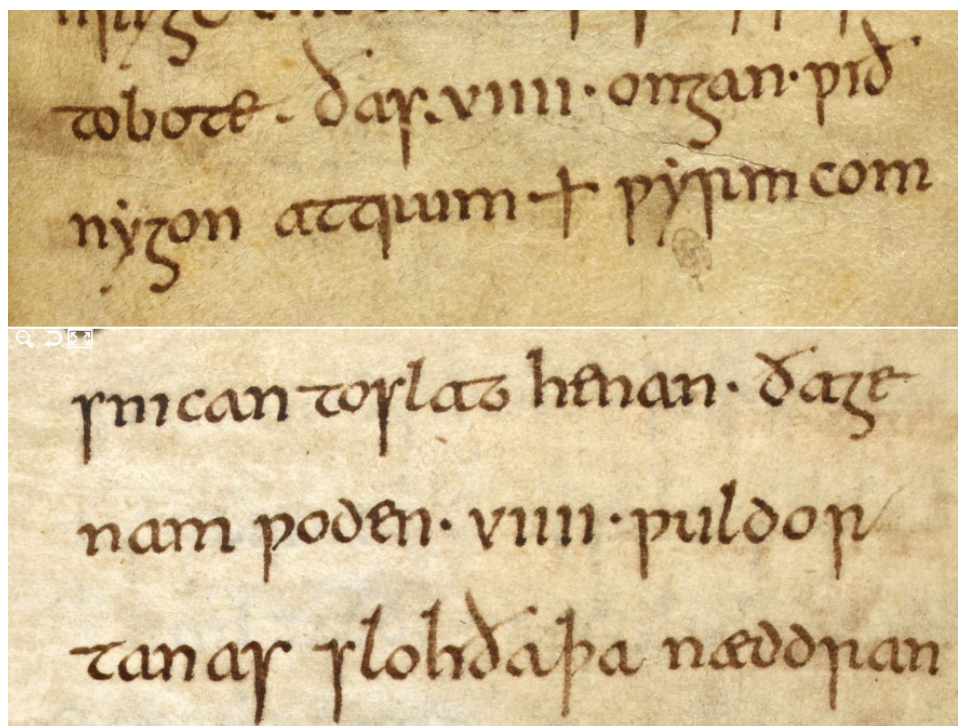 tobote. ðas. viiii · ongan · ƿið
nẏgon attrum + ƿẏrm com
snican toslat henan · ðage
nam ƿoden · viiii · ƿuldor
tanas sloh ða þa næddran